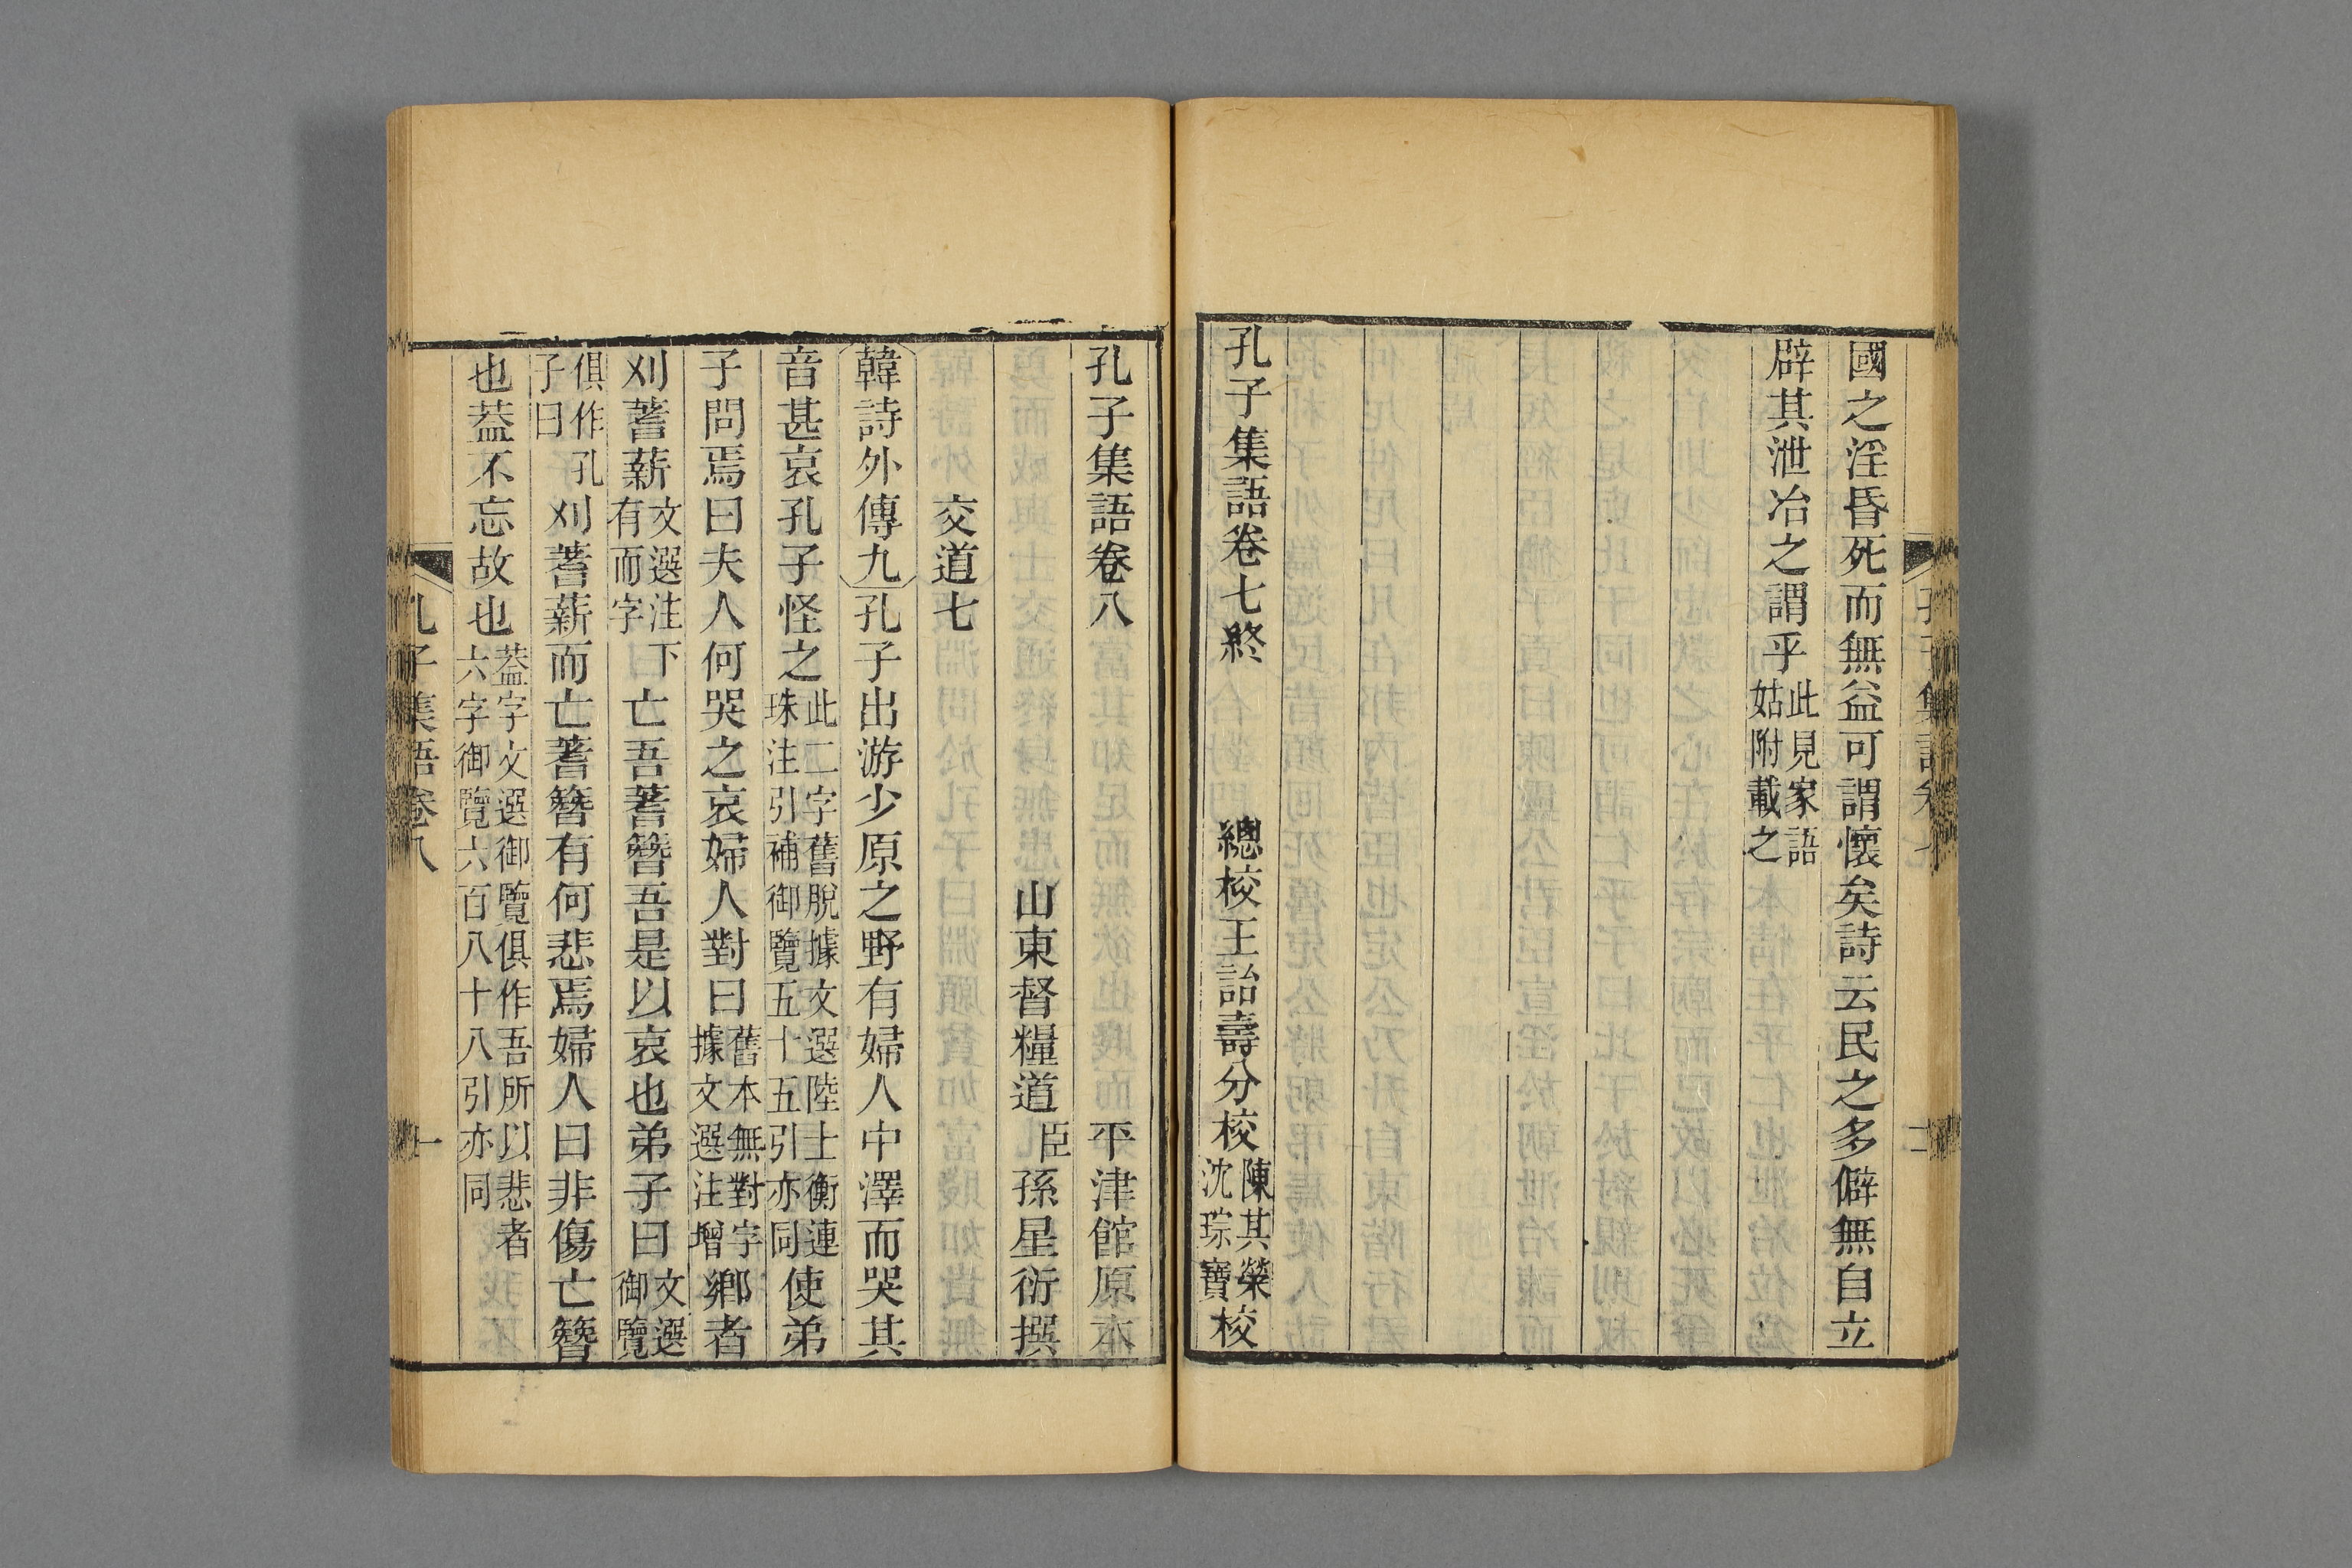 國之淫昏死而無益可謂懷矣詩云民之多僻無自立
辟其泄冶之謂乎此見家語姑附載之
孔子集語卷七終 總校王詒壽分校陳其榮沈琮寶校
孔子集語卷八 平津館原本
山東督糧道臣孫星衍撰
交道七
韓詩外傳九孔子出游少原之野有婦人中澤而哭其
音甚哀孔子怪之此二字舊脫據文選陸士衡連珠注引補御覽五十五引亦同使弟
子問焉曰夫人何哭之哀婦人對曰舊本無對字據文選注增鄉者
刈蓍薪文選注下有而字亡吾蓍簪吾是以哀也弟子曰文選御覽
俱作孔子曰刈蓍薪而亡蓍簪有何悲焉婦人曰非傷亡簪
也葢不忘故也葢字文選御覽俱作吾所以悲者六字御覽六百八十八引亦同
孔子集語卷八 一